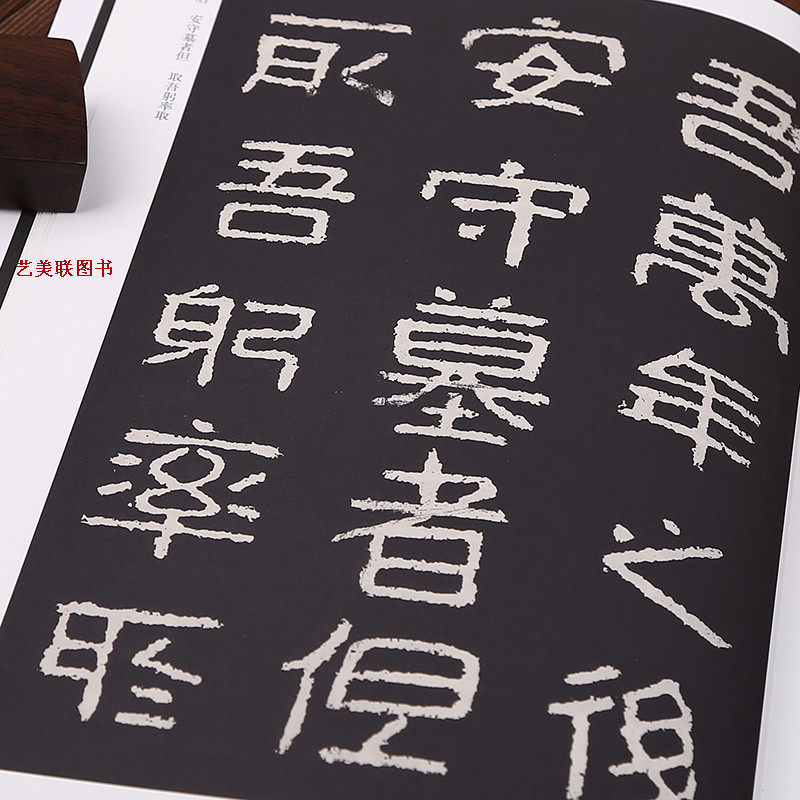 吾萬年之後
安守墓者但
取吾躬率取
安守墓者但 取吾躬率取
艺美联图书